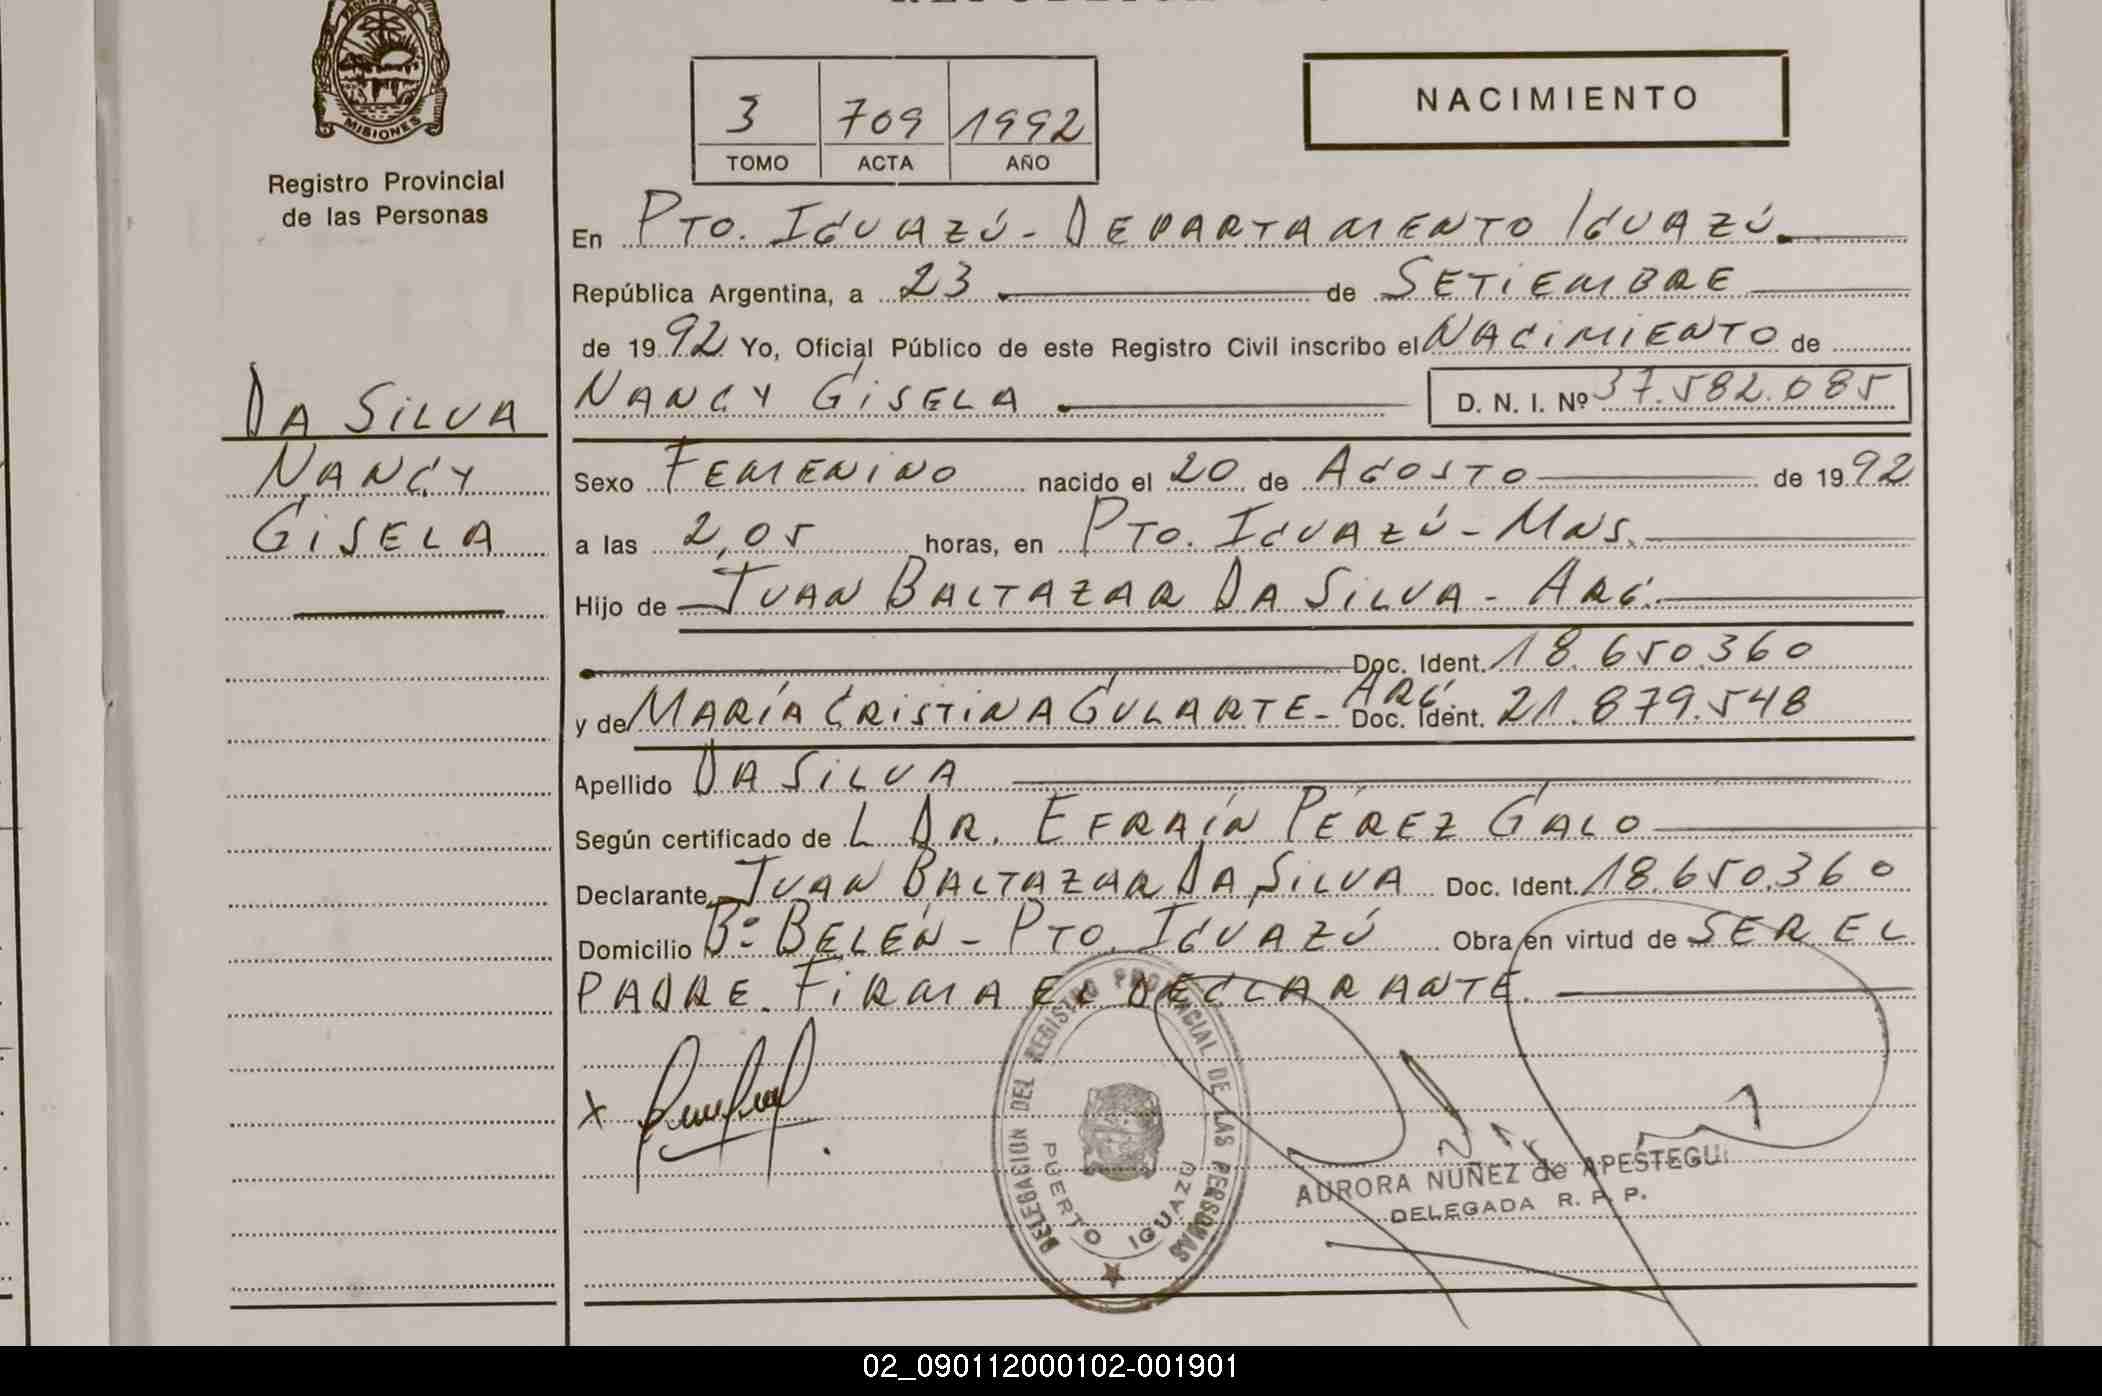 MISIONES
Registro Provincial
de las Personas
3 709 1992
TOMO ACTA AÑO
NACIMIENTO
En PTO. IGUAZÚ - DEPARTAMENTO IGUAZÚ.
República Argentina, a 23 de SETIEMBRE
de 1992 Yo, Oficial Público de este Registro Civil inscribo el NACIMIENTO de
NANCY GISELA D. N. I. Nº 37.582.085
DA SILVA
NANCY
GISELA
Sexo FEMENINO nacido el 20 de AGOSTO de 1992
a las 2,05 horas, en PTO. IGUAZÚ - MNS.
Hijo de JUAN BALTAZAR DA SILVA - ARG.
Doc. Ident. 18.650.360
y de MARÍA CRISTINA GULARTE - ARG. Doc. Ident. 21.879.548
Apellido DA SILVA
Según certificado de L DR. EFRAÍN PÉREZ GALO
Declarante JUAN BALTAZAR DA SILVA Doc. Ident. 18.650.360
Domicilio Bº BELÉN - PTO. IGUAZÚ Obra en virtud de SER EL
PADRE. FIRMA EL DECLARANTE.
X
DELEGACION DEL REGISTRO PROVINCIAL DE LAS PERSONAS
PUERTO IGUAZU
AURORA NUÑEZ de APESTEGUI
DELEGADA R. P. P.
02_090112000102-001901